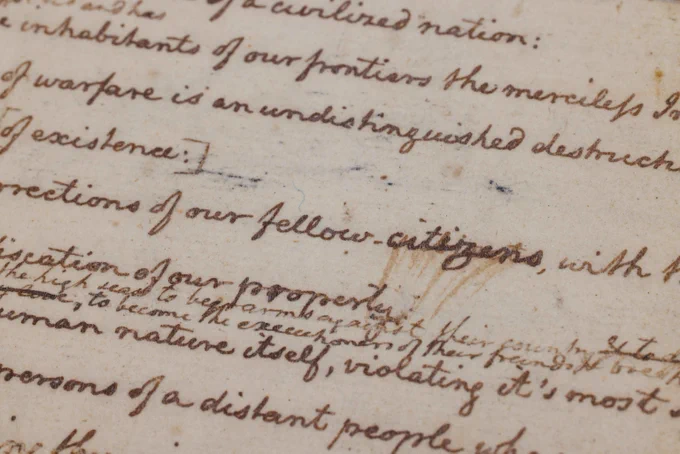 and has
of a civilized nation:
inhabitants of our frontiers the merciless In
of warfare is an undistinguished destruct
[of existence:]
rrections of our fellow-citizens, with t
iscation of our property.
the high seas to bear arms against their country
to become the executioners of their friends & breth
uman nature itself, violating it's most s
persons of a distant people who